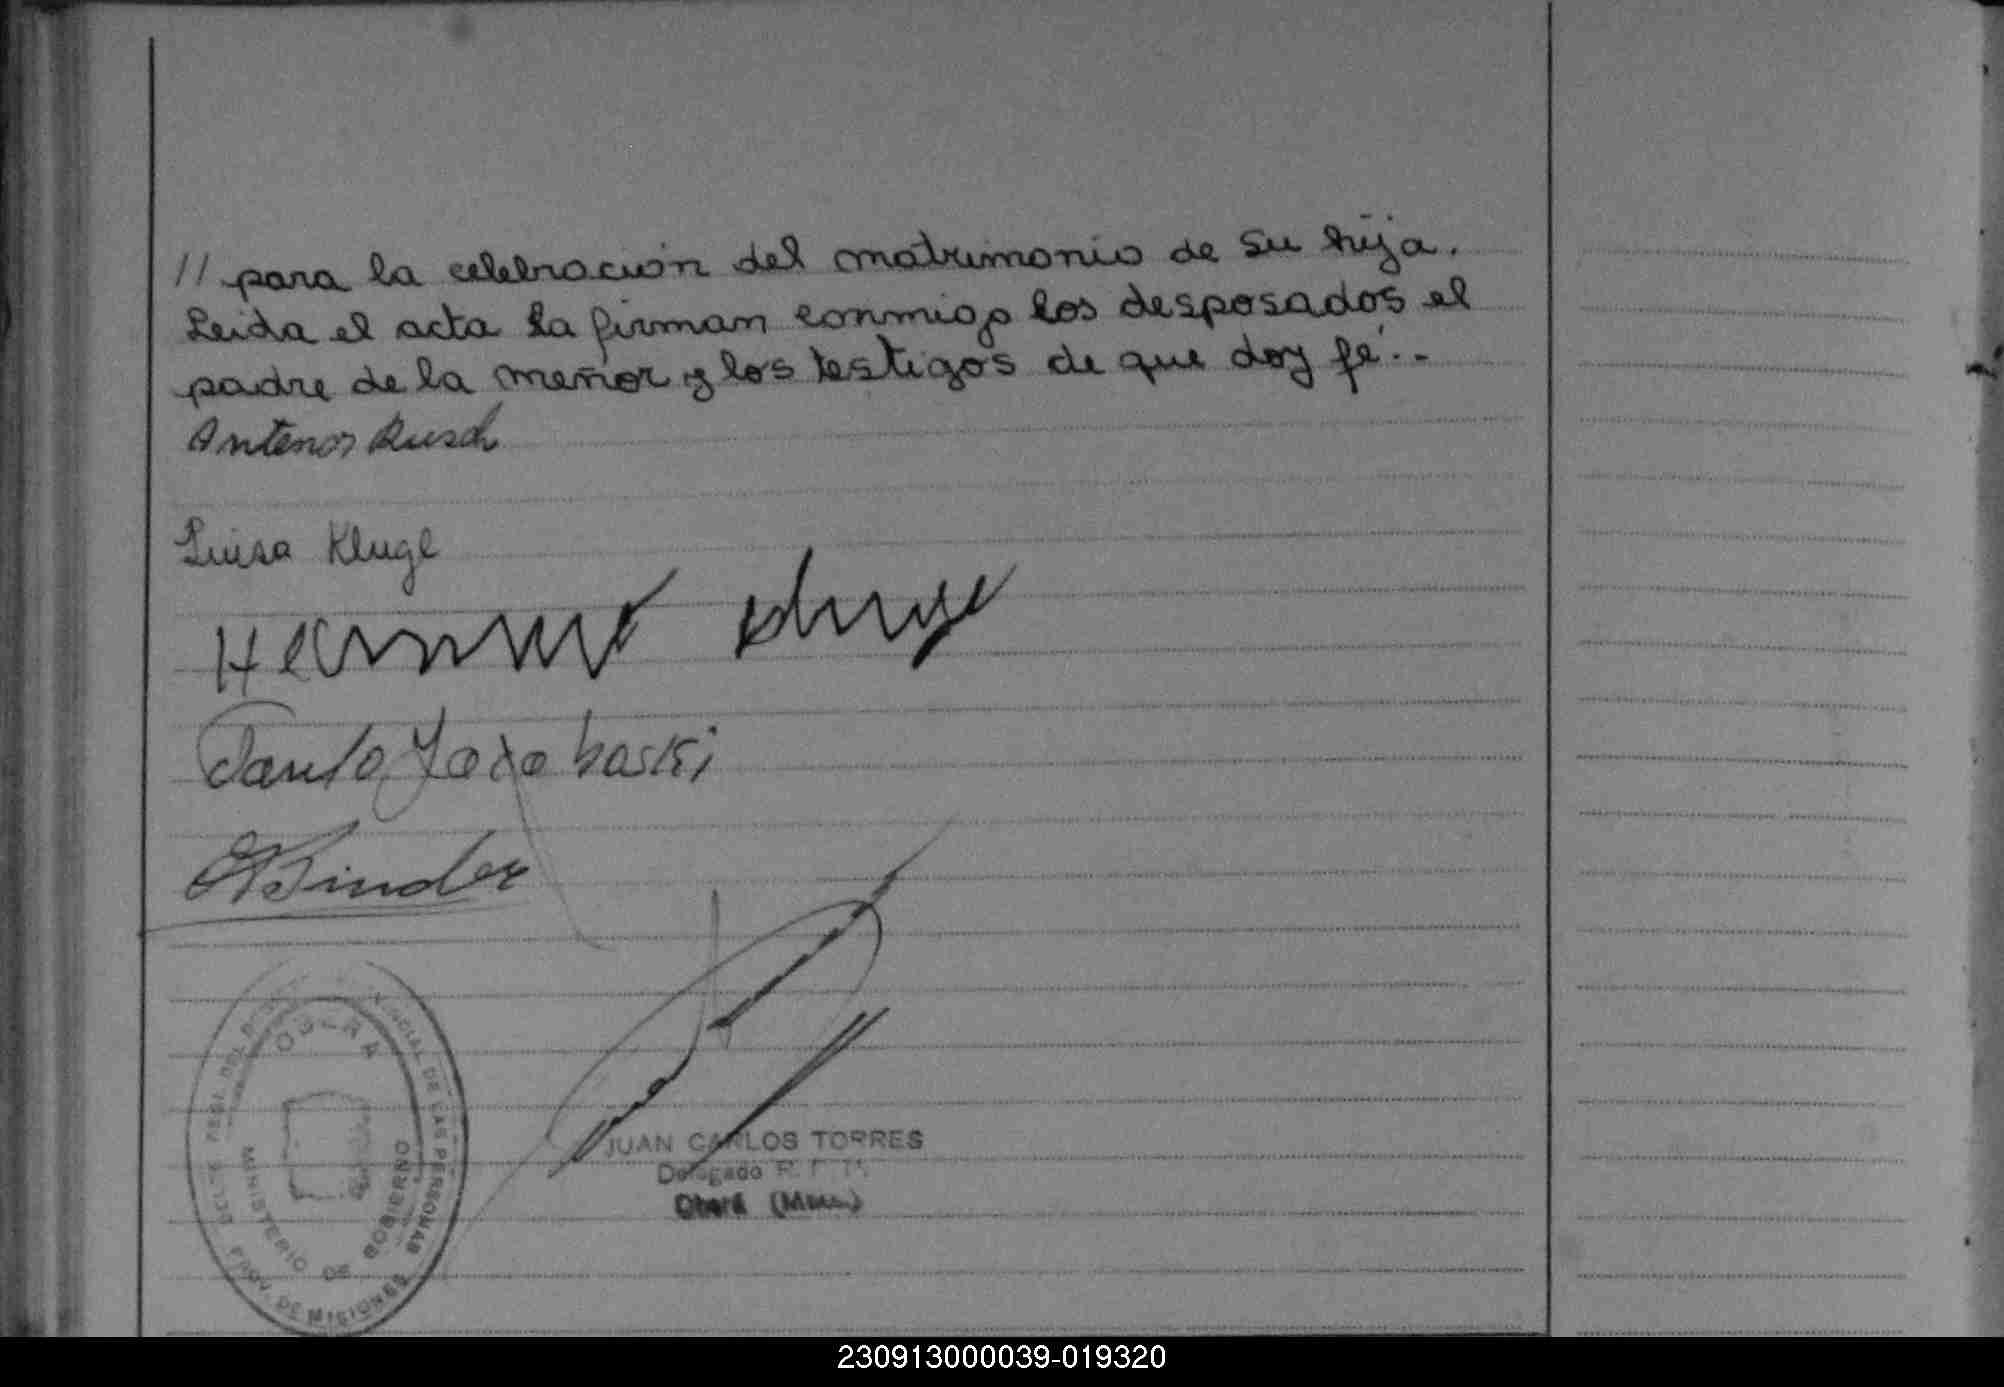 // para la celebración del matrimonio de su hija.
Leida el acta la firman conmigo los desposados el
padre de la menor y los testigos de que doy fé.-
Antenor Rusch
Luisa Kluge
Kluge
Binder
OBERA
DE LAS PERSONAS
MINISTERIO DE GOBIERNO
PROV. DE MISIONES
JUAN CARLOS TORRES
Delegado
Oberá
230913000039-019320